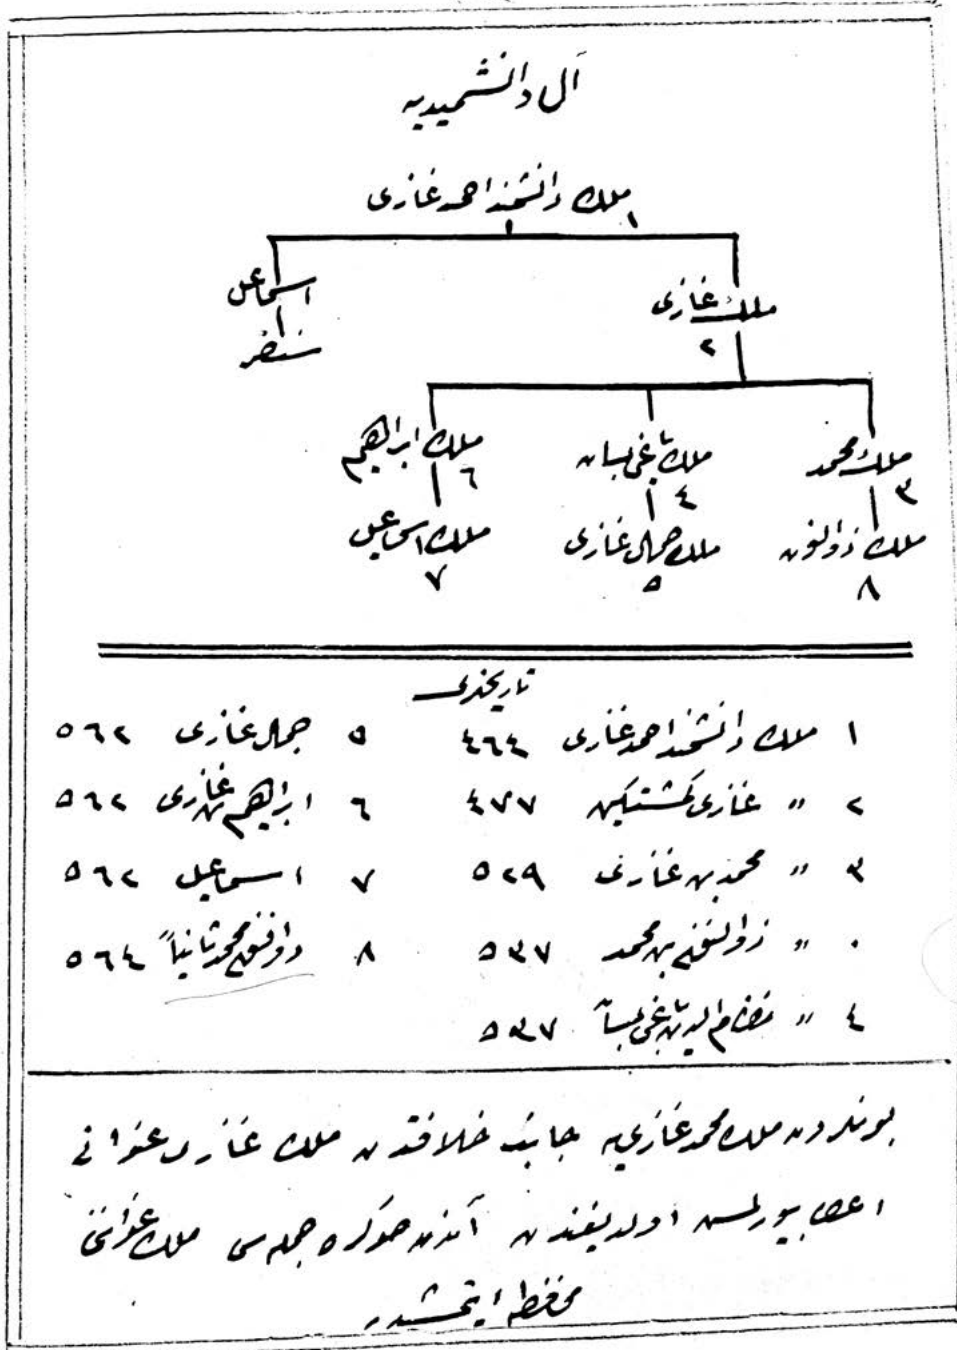 آل دانشمیدیه
ملك دانشمند احمد غازی
١
ملك غازی
٢
اسماعیل
سنقر
ملك محمد
٣
ملك یاغی بسان
٤
ملك ابراهیم
٦
ملك ذوالنون
٨
ملك جمال غازی
٥
ملك اسماعیل
٧
تاریخلری
١ ملك دانشمند احمد غازی ٤٦٤
٢ " غازی كمشتكین ٤٧٧
٣ " محمد بن غازی ٥٢٩
٠ " ذوالنون بن محمد ٥٣٧
٤ " نظام الدین یاغی بسان ٥٣٧
٥ جمال غازی ٥٦٢
٦ ابراهیم بن غازی ٥٦٢
٧ اسماعیل ٥٦٢
٨ محمد ثانیاً ٥٦٤
بونلردن ملك محمد غازی یه جانب خلافتدن ملك غازی عنوانی
اعطا بیورلمش اولدیغندن آندن صوكره جمله سی ملك عنواننی
محافظه ایتمشدر